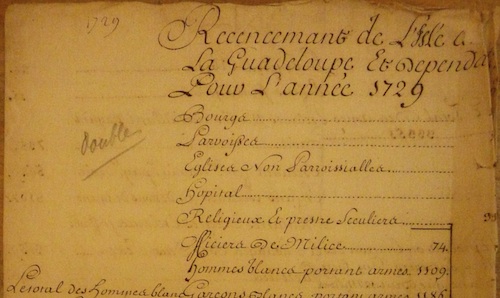 1729
Recencemant de L'Isle
La Guadeloupe Et Dependa
Pour L'année 1729
double
Bourgs
Parroisses
Eglises Non Parroissialles
Hopital
Religieux Et prestre Seculiers
Officiers De Milice 74.
Hommes blancs portant armes 1109.
Le total des hommes blancs Garçons blancs portant armes 1185